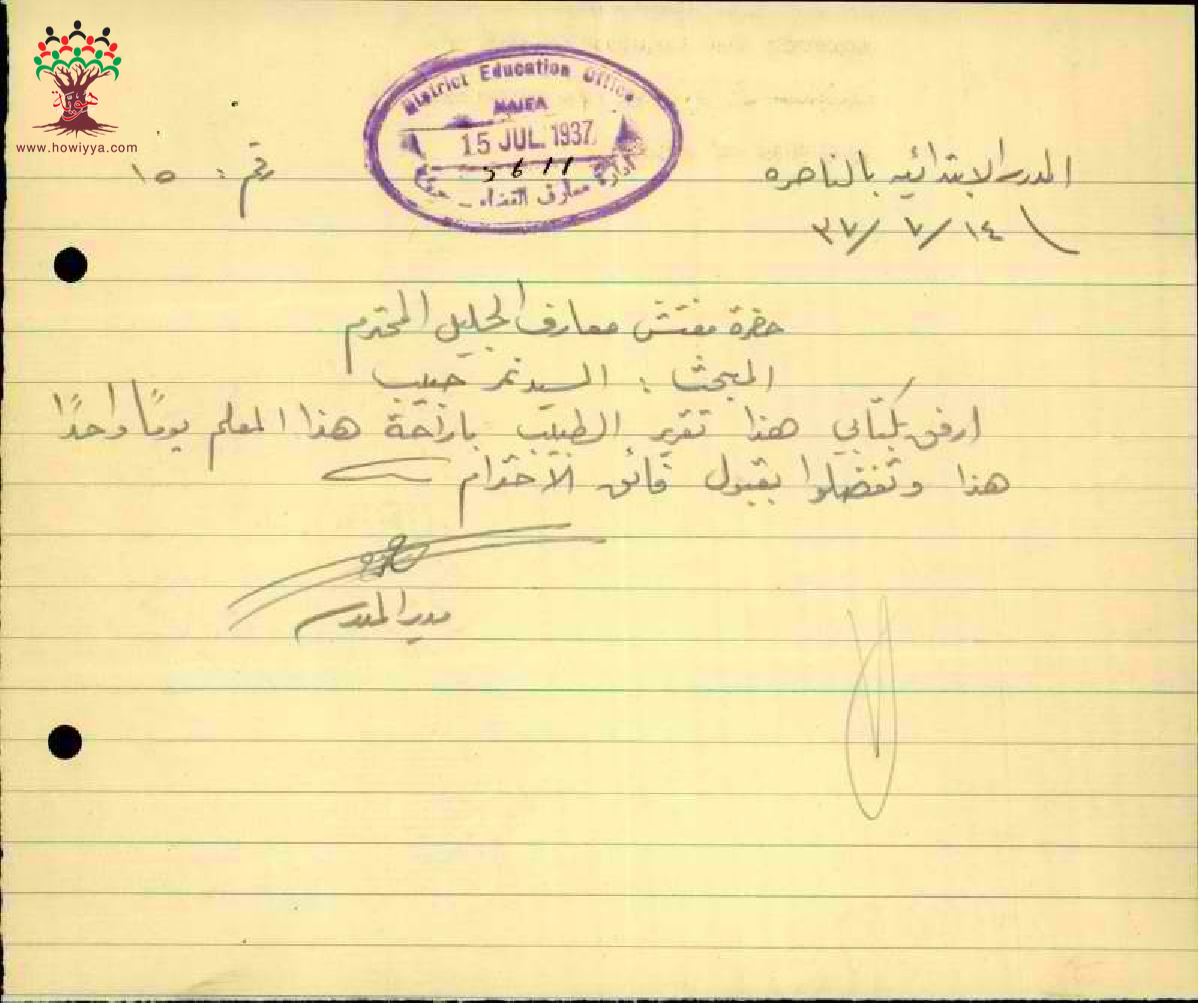 www.howiyya.com
District Education Office
HAIFA
15 JUL. 1937
5611
ادارة معارف القضاء - حيفا
المدرسة الابتدائيه بالناصره
رقم : ١٥
١٤/ ٧/ ٣٧
حضرة مفتش معارف الجليل المحترم
المبحث : السيد نمر حبيب
ارفق بكتابي هذا تقرير الطبيب باراحة هذا المعلم يومًا واحدًا
هذا وتفضلوا بقبول فائق الاحترام
مدير المدرسه